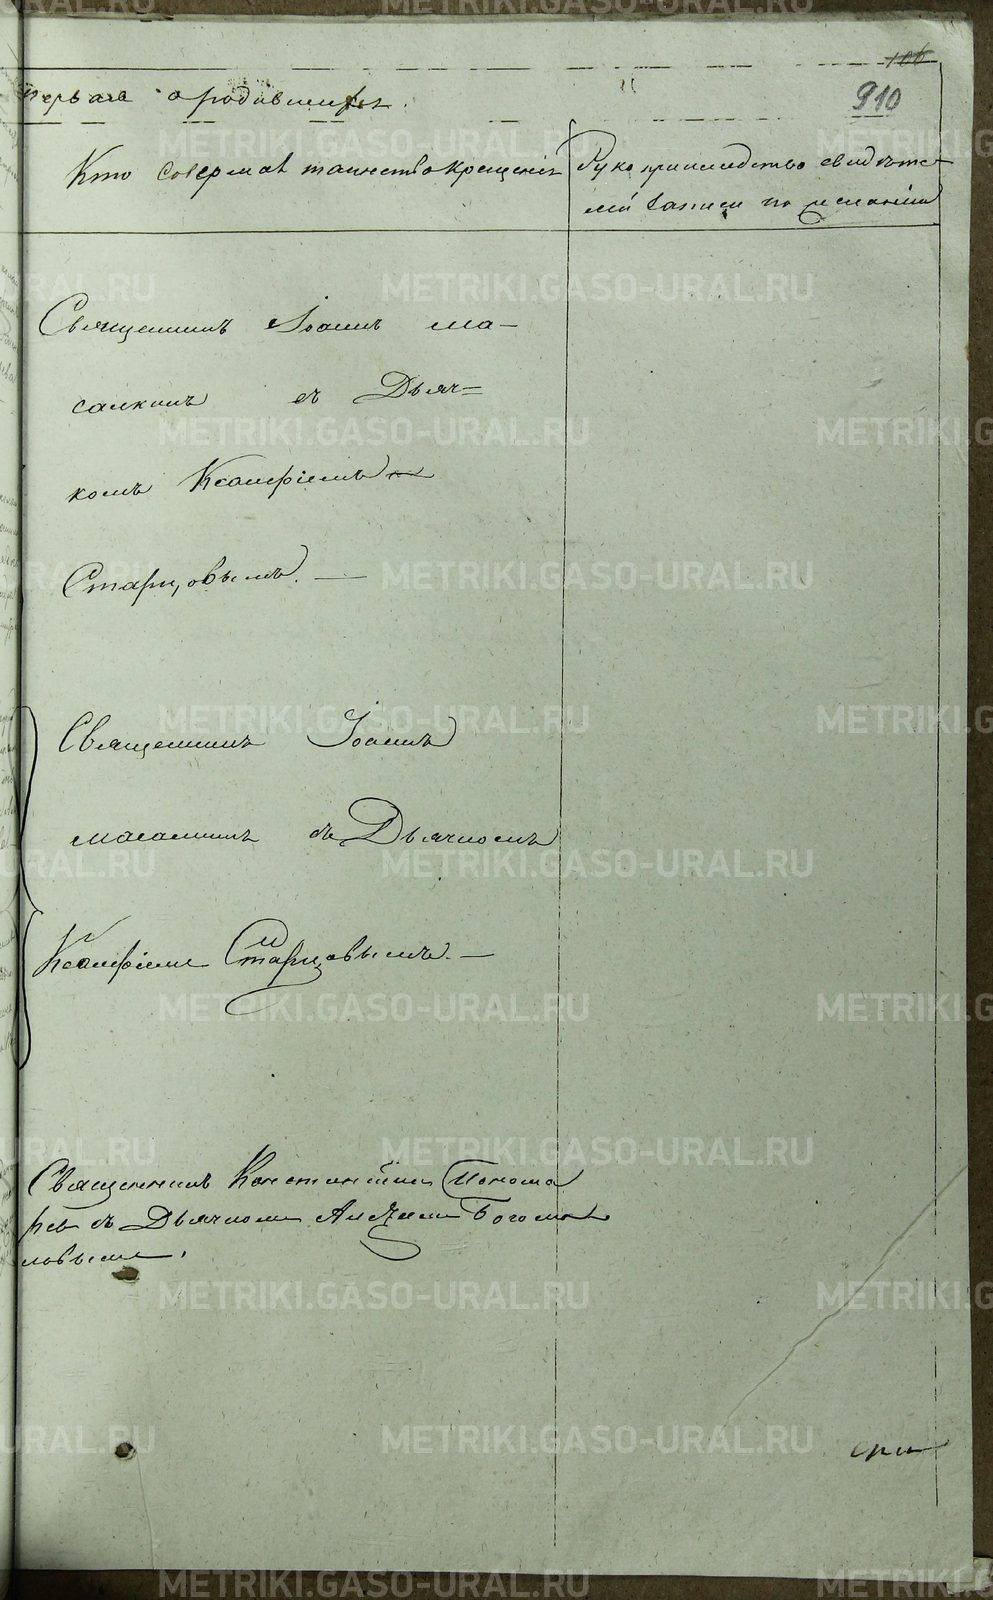 106
910
первая о родившихся.
Кто совершал таинство крещенія
Рукоприкладство свидѣте-
лей записи по желанію
Священникъ Іоаннъ Ма-
салкинъ съ Дьяч=
комъ Ксанфіемъ
Старцовымъ. —
Священникъ Іоаннъ
Масалкинъ съ Дьячкомъ
Ксанфіемъ Старцовымъ. —
Священникъ Константинъ Понома
рев съ Дьячкомъ Алексѣемъ Богомо
ловымъ.
METRIKI.GASO-URAL.RU